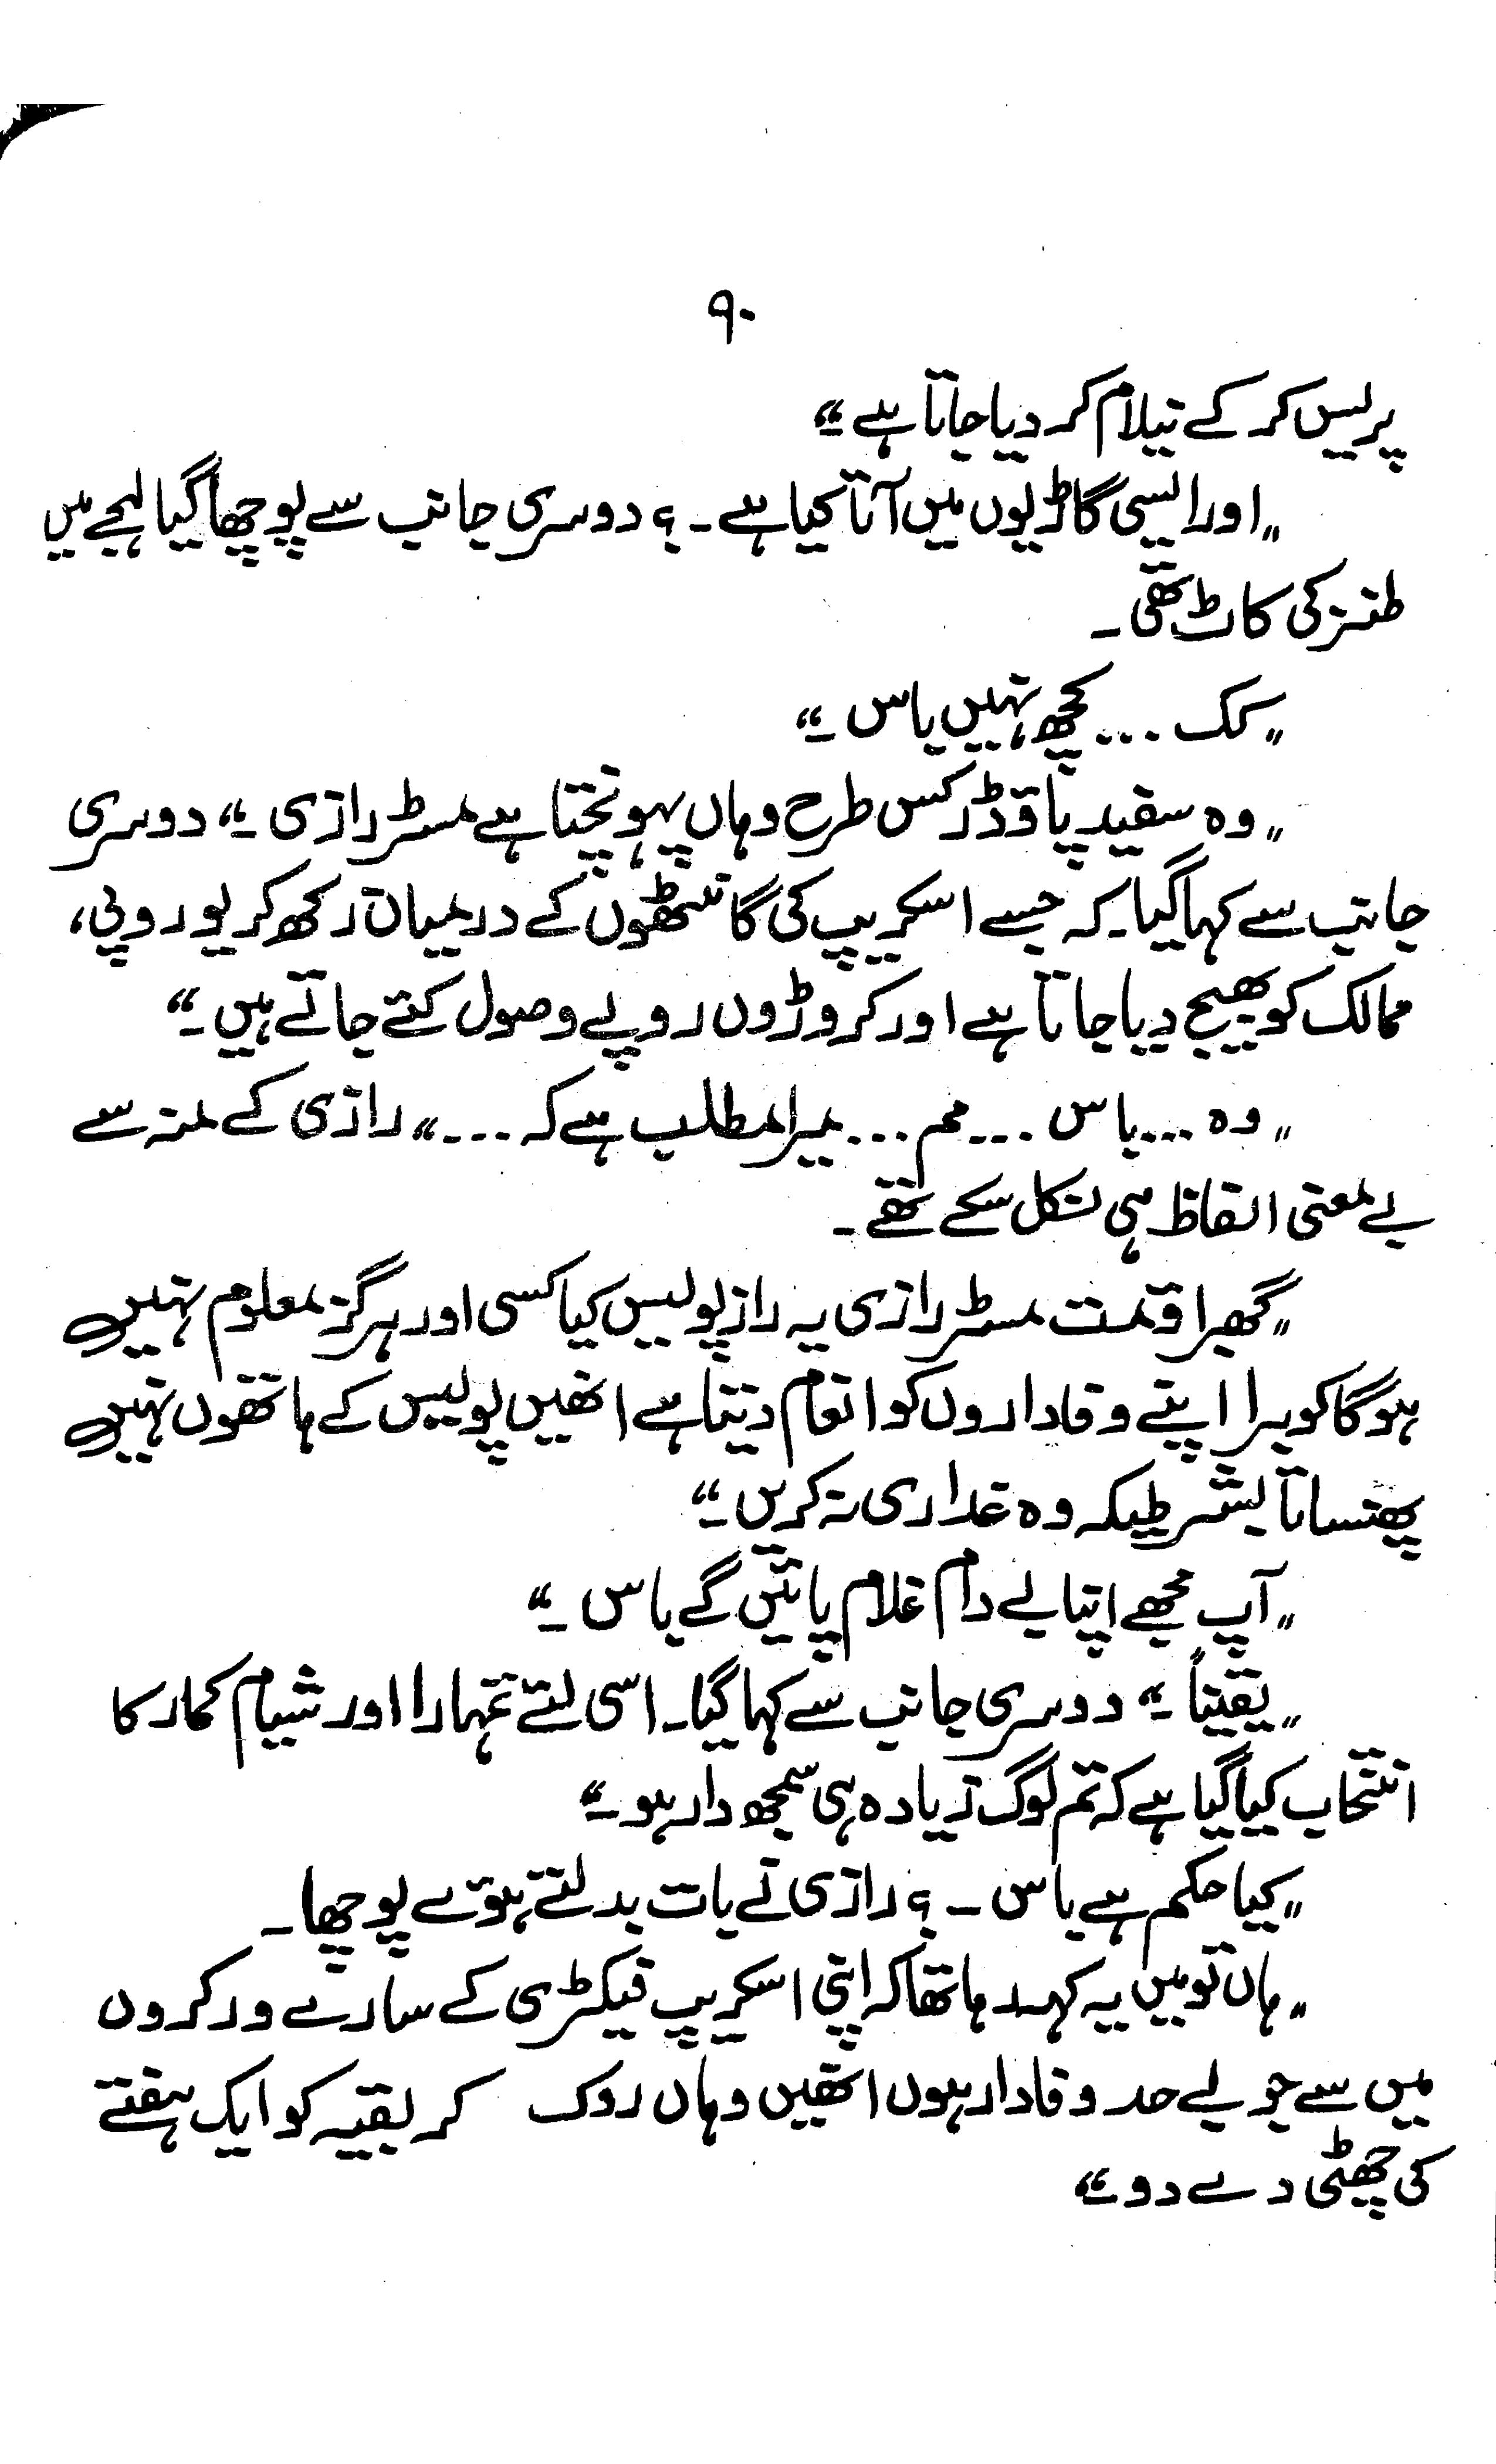 ۹۰
پریس کر کے نیلام کر دیا جاتا ہے ۔"
"اور ایسی گاڑیوں میں آتا کیا ہے ۔؟ دوسری جانب سے پوچھا گیا لہجے میں
طنز کی کاٹ تھی ۔
"کک ... کچھ نہیں باس ۔"
"وہ سفید پاؤڈر کس طرح وہاں پہونچتا ہے مسٹر رازی ۔" دوسری
جانب سے کہا گیا۔ کہ جسے اسکریپ کی گانٹھوں کے درمیان رکھ کر یوروپی،
ممالک کو بھیج دیا جاتا ہے اور کروڑوں روپے وصول کئے جاتے ہیں ۔"
"وہ ... باس ... مم ... میرا مطلب ہے کہ ..." رازی کے منہ سے
بے معنی الفاظ ہی نکل سکے تھے ۔
"گھبراؤ مت مسٹر رازی یہ راز پولیس کیا کسی اور ہرگز معلوم نہیں
ہوگا کوبرا اپنے وفاداروں کو انعام دیتا ہے انھیں پولیس کے ہاتھوں نہیں
پھنساتا بشرطیکہ وہ غداری نہ کریں ۔"
"آپ مجھے اپنا بے دام غلام پائیں گے باس ۔"
"یقیناً ۔" دوسری جانب سے کہا گیا۔ اسی لئے تمہارا اور شیام کمار کا
انتخاب کیا گیا ہے کہ تم لوگ زیادہ ہی سمجھ دار ہو ۔"
"کیا حکم ہے باس ۔؟ رازی نے بات بدلتے ہوئے پوچھا ۔
"ہاں تو میں یہ کہہ رہا تھا کہ اپنی اسکریپ فیکٹری کے سارے ورکروں
میں سے جو بے حد وفادار ہوں انھیں وہاں روک کر بقیہ کو ایک ہفتے
کی چھٹی دے دو ۔"